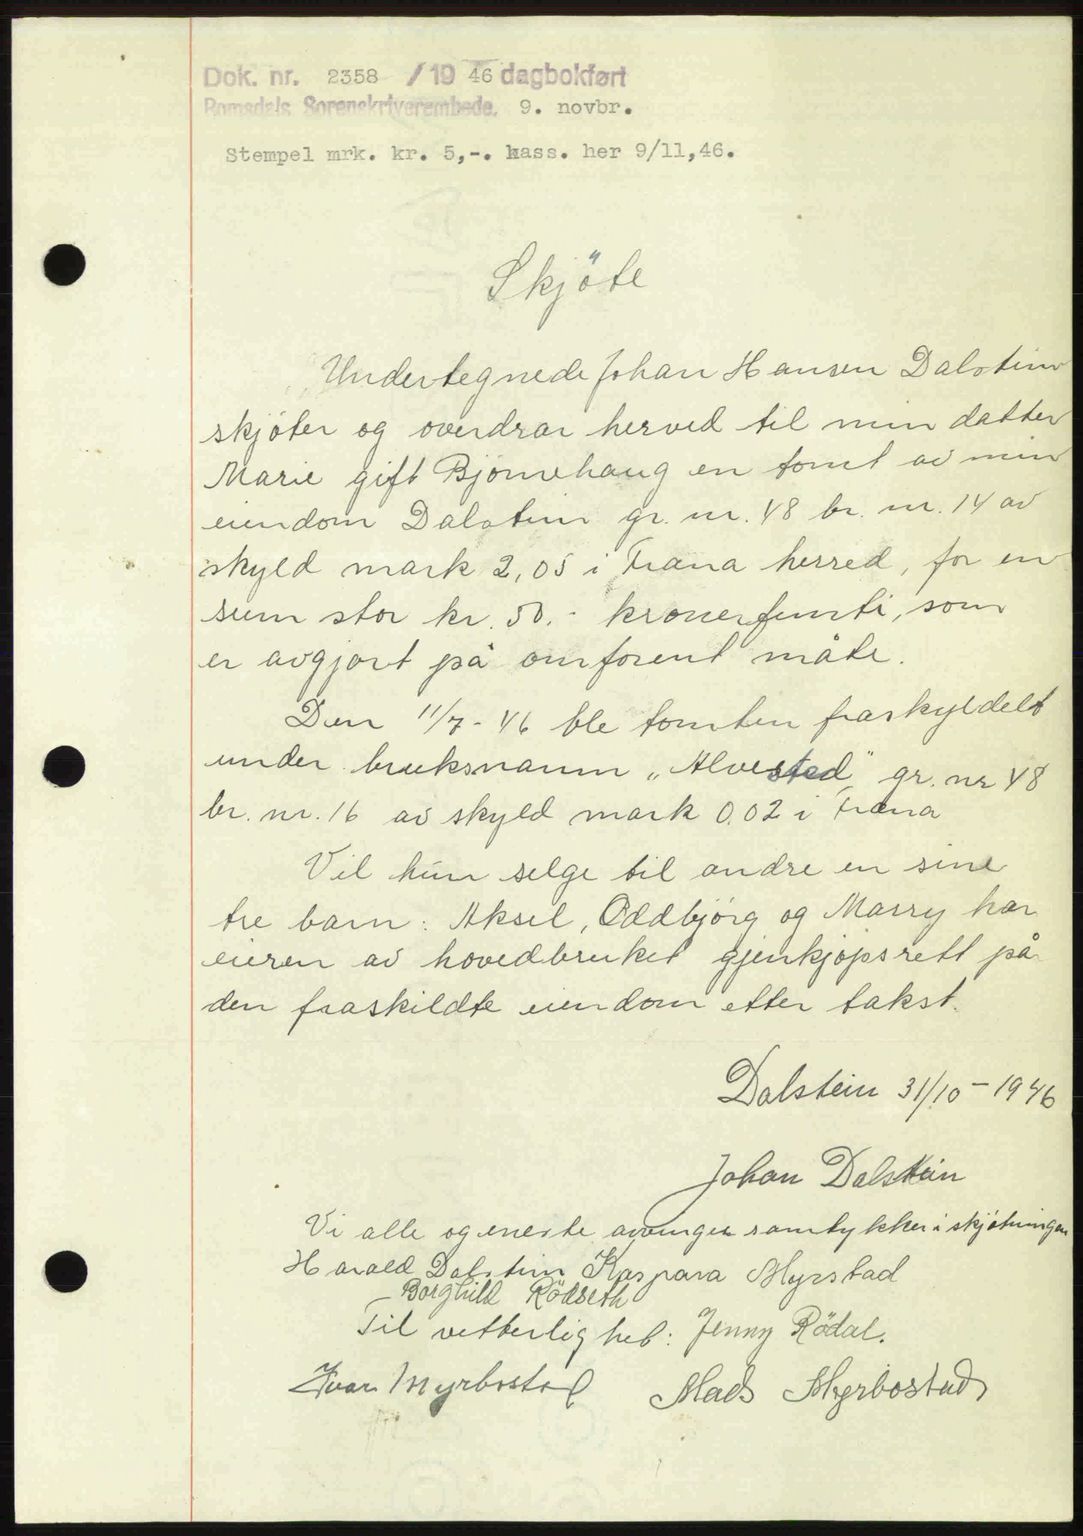 Dok. nr. 2358 / 19 46 dagbokført
Romsdals Sorenskriverembede. 9. novbr.
Stempel mrk. kr. 5,-. kass. her 9/11,46.
Skjöte
Undertegnede Johan Hansen Dalstein
skjöter og overdrar herved til min datter
Marie gift Björnehaug en tomt av min
eiendom Dalstein gr. nr. 48 br. nr. 14 av
skyld mark 2,05 i Fræna herred, for en
sum stor kr. 50.- kroner femti, som
er avgjort på omforent måte.
Den 11/7-46 ble tomten fraskyldelt
under bruksnamn „Alvested" gr. nr 48
br. nr. 16 av skyld mark 0.02 i Fræna
Vil hun selge til andre en sine
tre barn: Aksel, Oddbjörg og Marry har
eieren av hovedbruket gjenkjöpsrett på
den fraskildte eiendom etter takst.
Dalstein 31/10-1946
Johan Dalstein
Vi alle og eneste arvinger samtykker i skjötningen
Harald Dalstein Kaspara Myrstad
Borghild Rödseth
Til vetterlighet: Jenny Rödal.
Ivar Myrbostad Mads Myrbostad